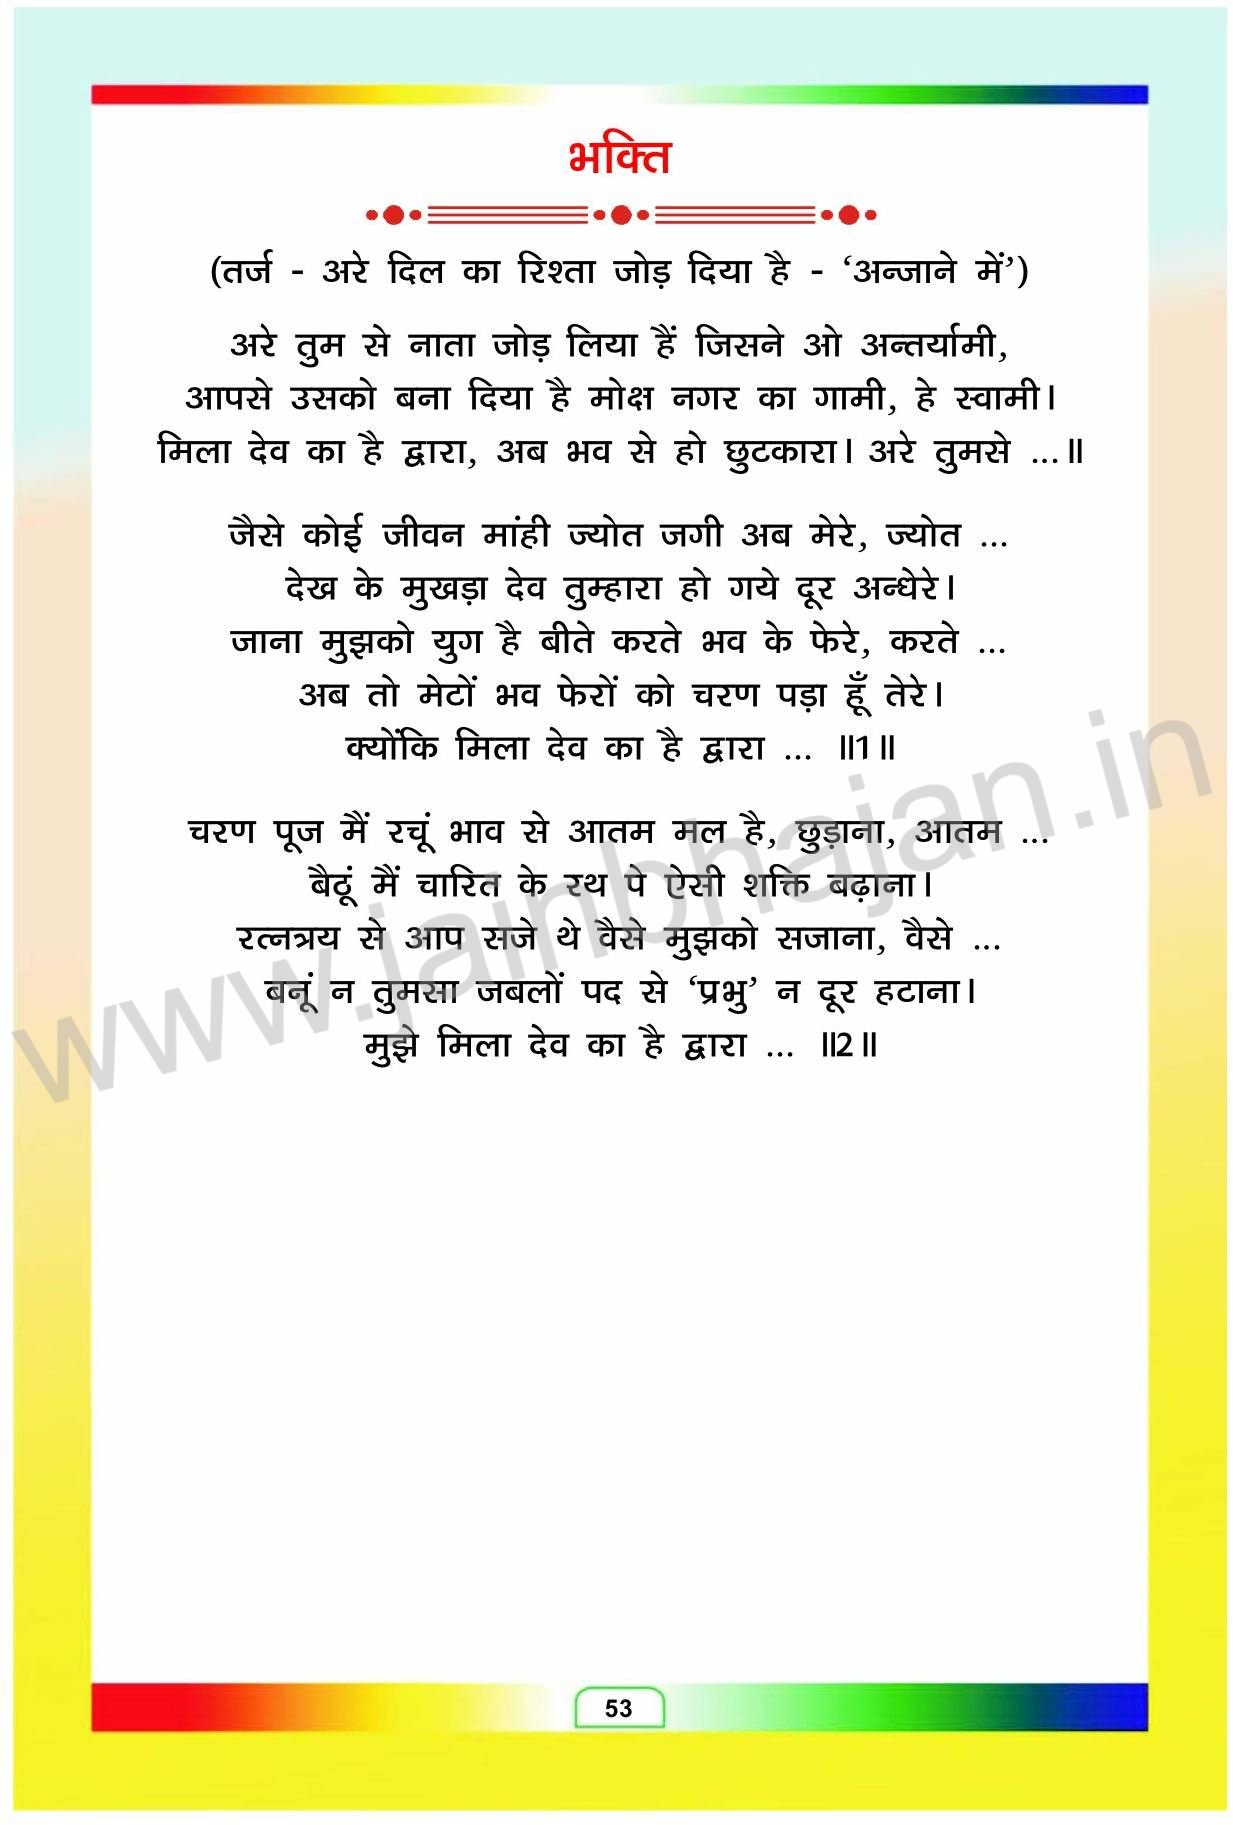 भक्ति
(तर्ज - अरे दिल का रिश्ता जोड़ दिया है - ‘अन्जाने में’)
अरे तुम से नाता जोड़ लिया हैं जिसने ओ अन्तर्यामी,
आपसे उसको बना दिया है मोक्ष नगर का गामी, हे स्वामी।
मिला देव का है द्वारा, अब भव से हो छुटकारा। अरे तुमसे ...॥
जैसे कोई जीवन मांही ज्योत जगी अब मेरे, ज्योत ...
देख के मुखड़ा देव तुम्हारा हो गये दूर अन्धेरे।
जाना मुझको युग है बीते करते भव के फेरे, करते ...
अब तो मेटों भव फेरों को चरण पड़ा हूँ तेरे।
क्योंकि मिला देव का है द्वारा ... ॥1॥
चरण पूज मैं रचूं भाव से आतम मल है, छुड़ाना, आतम ...
बैठूं मैं चारित के रथ पे ऐसी शक्ति बढ़ाना।
रत्नत्रय से आप सजे थे वैसे मुझको सजाना, वैसे ...
बनूं न तुमसा जबलों पद से ‘प्रभु’ न दूर हटाना।
मुझे मिला देव का है द्वारा ... ॥2॥
www.jainbhajan.in
53